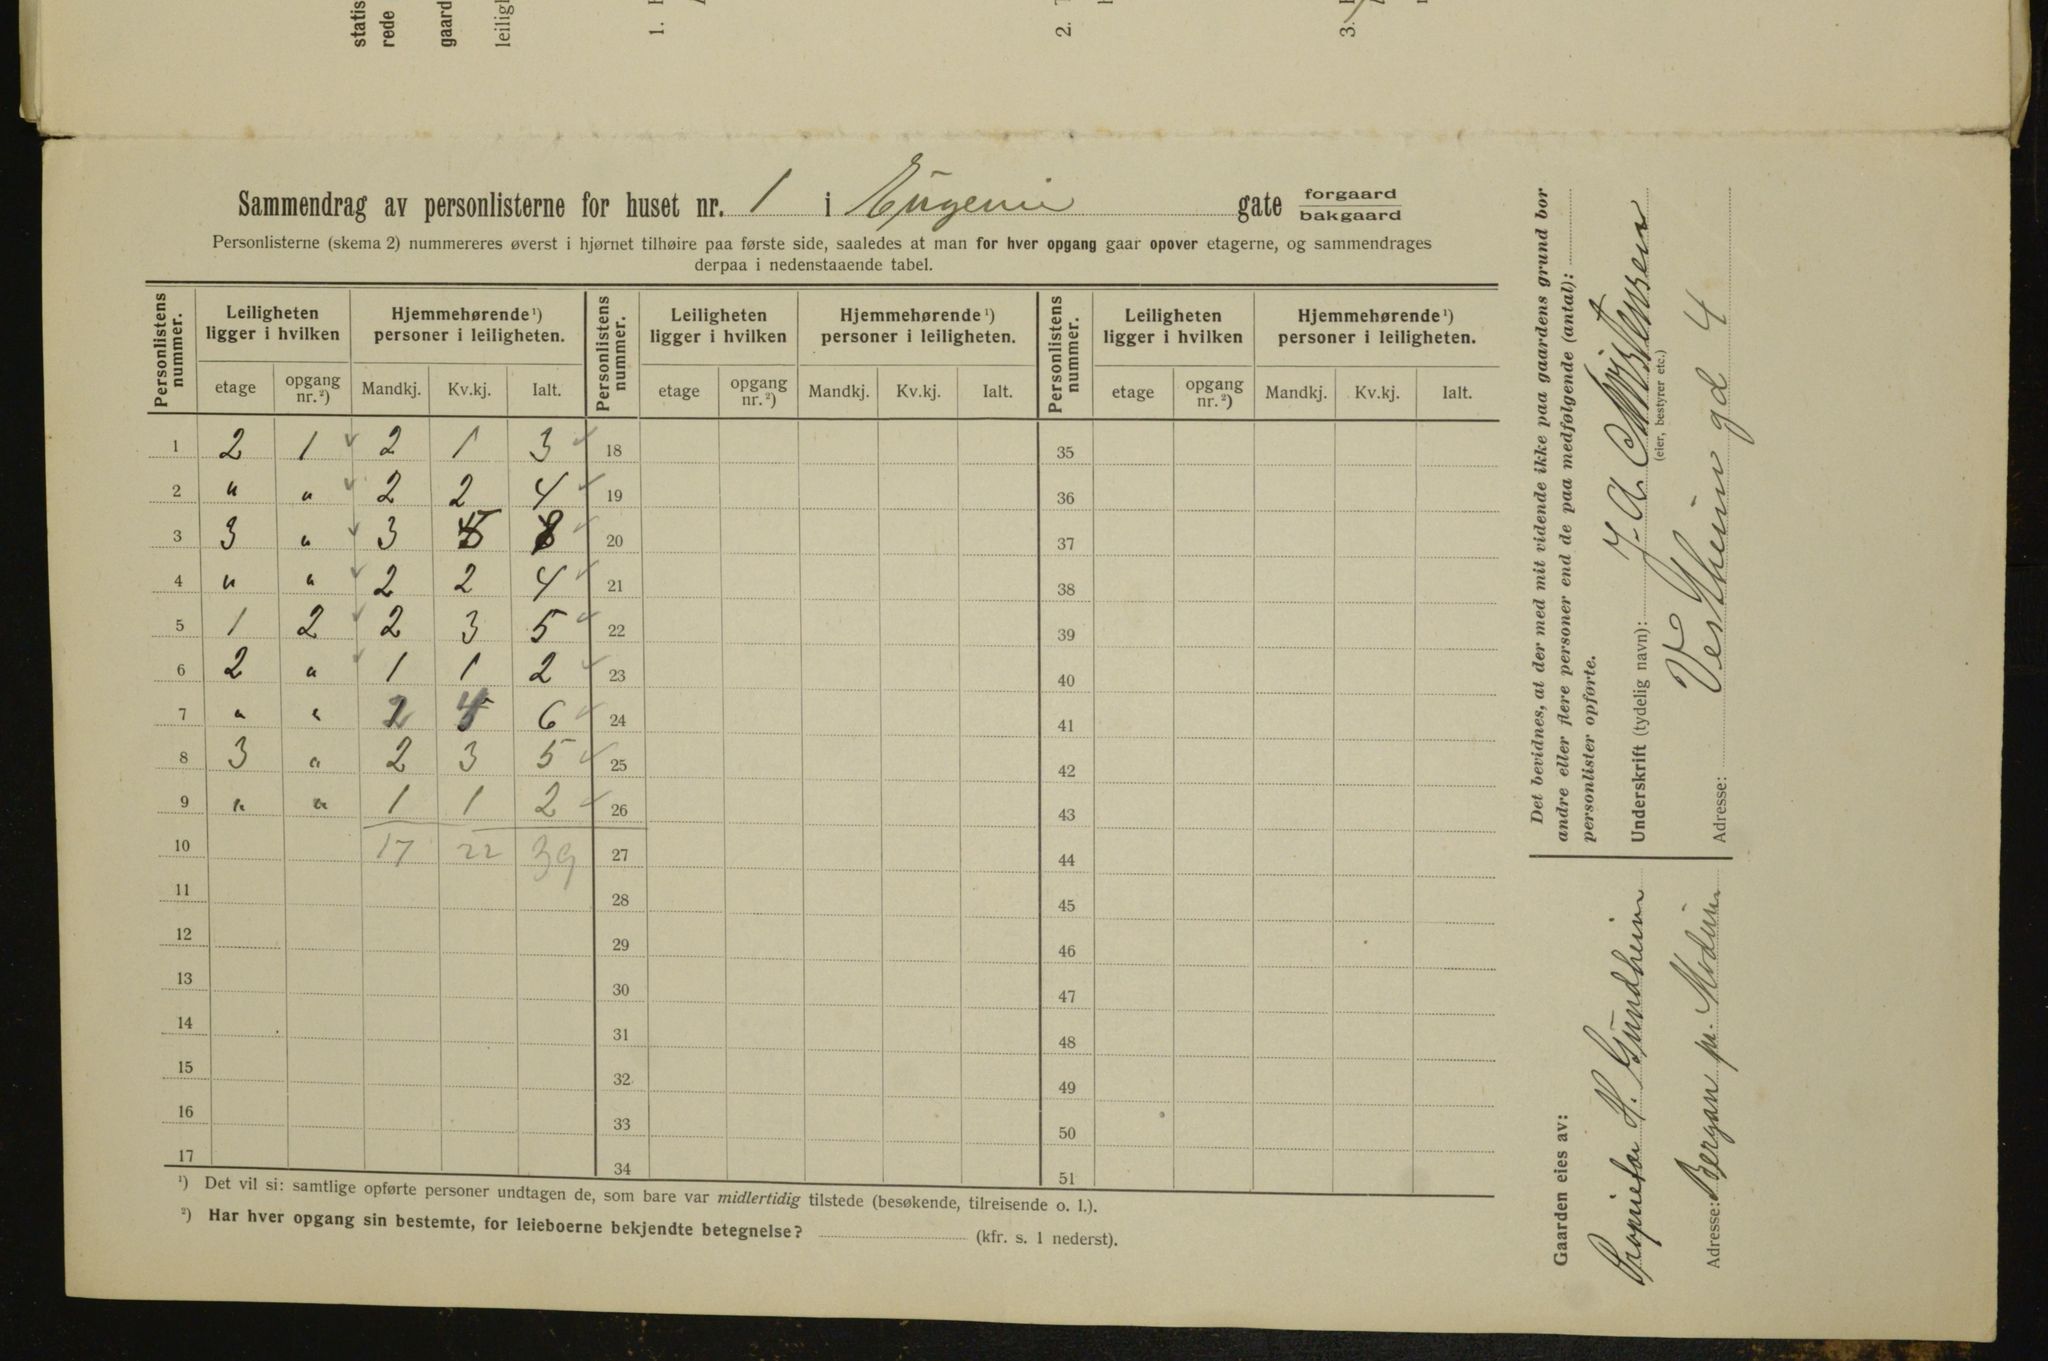 statis
rede
gaard
leilig
1.
2.
3.
Sammendrag av personlisterne for huset nr. 1 i Eugenie gate forgaard
bakgaard
Personlisterne (skema 2) nummereres øverst i hjørnet tilhøire paa første side, saaledes at man for hver opgang gaar opover etagerne, og sammendrages
derpaa i nedenstaaende tabel.
Personlistens nummer. Leiligheten ligger i hvilken Hjemmehørende ¹) personer i leiligheten. Personlistens nummer. Leiligheten ligger i hvilken Hjemmehørende ¹) personer i leiligheten. Personlistens nummer. Leiligheten ligger i hvilken Hjemmehørende ¹) personer i leiligheten.
etage opgang nr. ²) Mandkj. Kv.kj. Ialt. etage opgang nr. ²) Mandkj. Kv.kj. Ialt. etage opgang nr. ²) Mandkj. Kv.kj. Ialt.
1 2 1 2 1 3 18 35
2 " " 2 2 4 19 36
3 3 " 3 8 20 37
4 " " 2 2 4 21 38
5 1 2 2 3 5 22 39
6 2 " 1 1 2 23 40
7 " " 2 4 6 24 41
8 3 " 2 3 5 25 42
9 " " 1 1 2 26 43
10 17 22 39 27 44
11 28 45
12 29 46
13 30 47
14 31 48
15 32 49
16 33 50
17 34 51
¹) Det vil si: samtlige opførte personer undtagen de, som bare var midlertidig tilstede (besøkende, tilreisende o. l.).
²) Har hver opgang sin bestemte, for leieboerne bekjendte betegnelse? (kfr. s. 1 nederst).
Det bevidnes, at der med mit vidende ikke paa gaardens grund bor
andre eller flere personer end de paa medfølgende (antal):
personlister opførte.
Underskrift (tydelig navn): J. A. Christensen
(eier, bestyrer etc.)
Adresse: Vestheim gd 4
Gaarden eies av:
Proprietær H. Gundheim
Adresse: Bergan pr. Modum